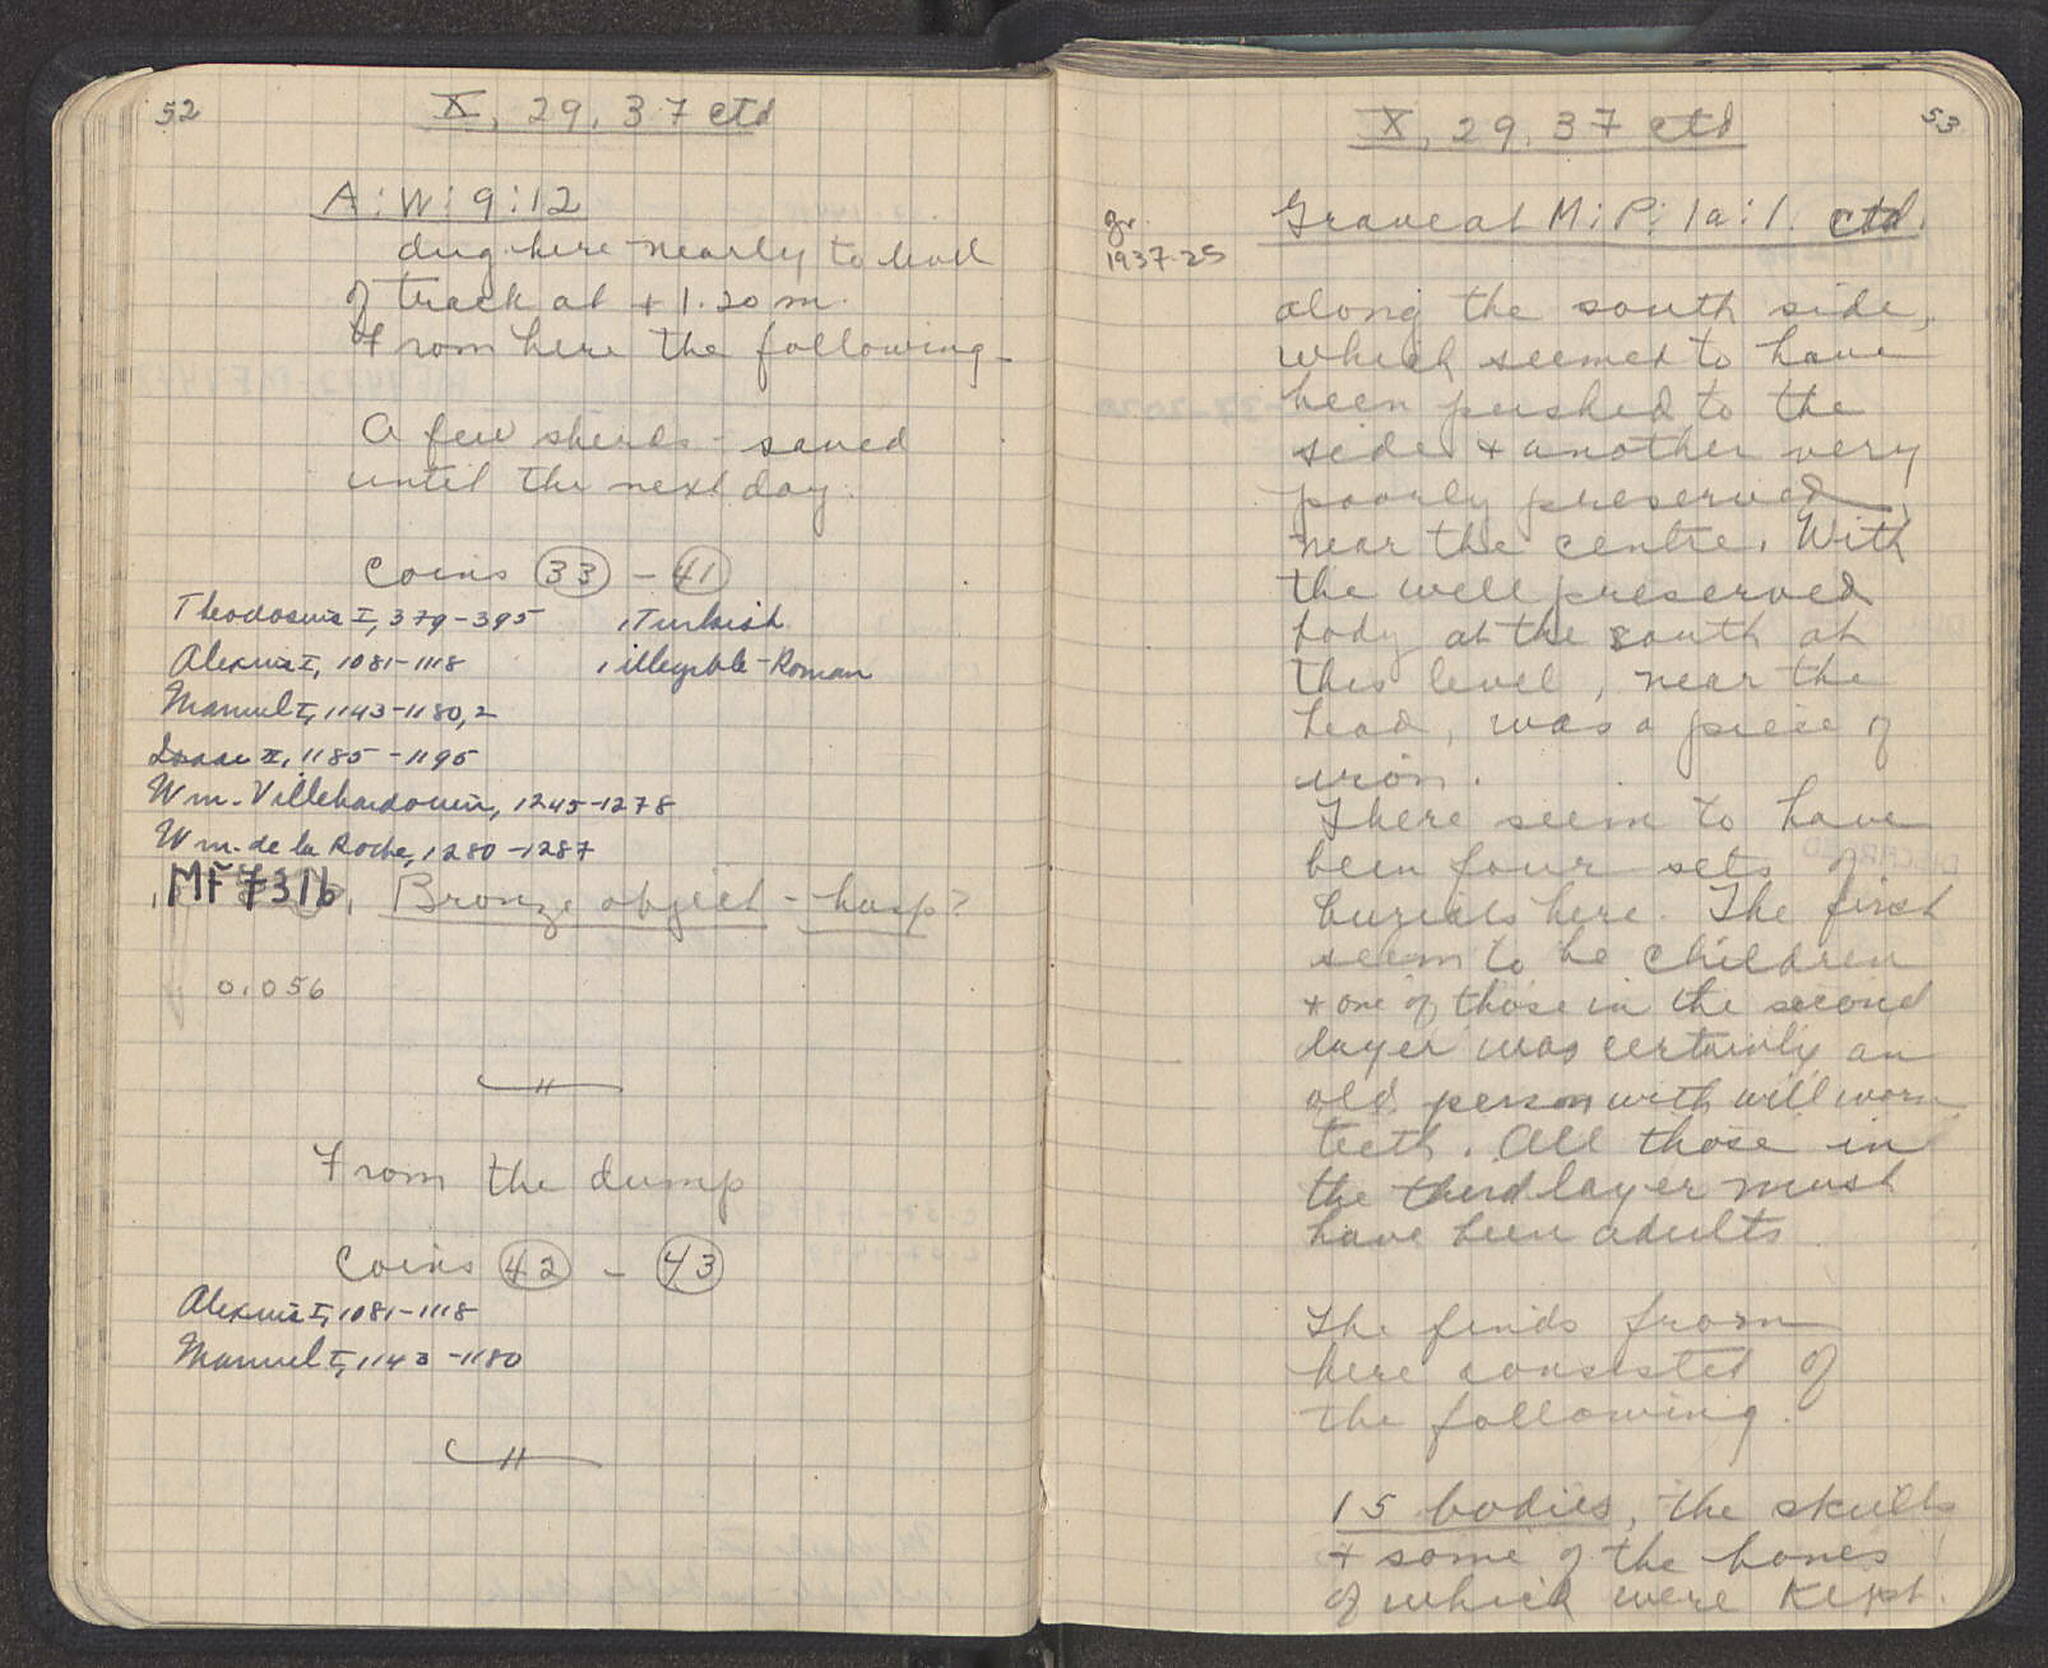 52
X, 29, 37 ctd
A:W:9:12
dug here nearly to level
of track at + 1.20 m.
From here the following -
A few sherds - saved
until the next day.
Coins 33 - 41
Theodosius I, 379-395 1 Turkish
Alexius I, 1081-1118 1 illegible - Roman
Manuel I, 1143-1180, 2
Isaac II, 1185-1195
Wm. Villehardouin, 1245-1278
Wm. de la Roche, 1280-1287
MF 7316 Bronze object - hasp?
0.056
From the dump
Coins 42 - 43
Alexius I, 1081-1118
Manuel I, 1143-1180
53
X, 29, 37 ctd
gr.
1937-25
Grave at M:P: 1a:1. ctd.
along the south side,
which seemed to have
been pushed to the
side & another very
poorly preserved
near the centre. With
the well preserved
body at the south at
this level, near the
head, was a piece of
iron.
There seem to have
been four sets of
burials here. The first
seem to be children
& one of those in the second
layer was certainly an
old person with well worn
teeth. All those in
the third layer must
have been adults
The finds from
here consisted of
the following.
15 bodies, the skulls
+ some of the bones
of which were kept.